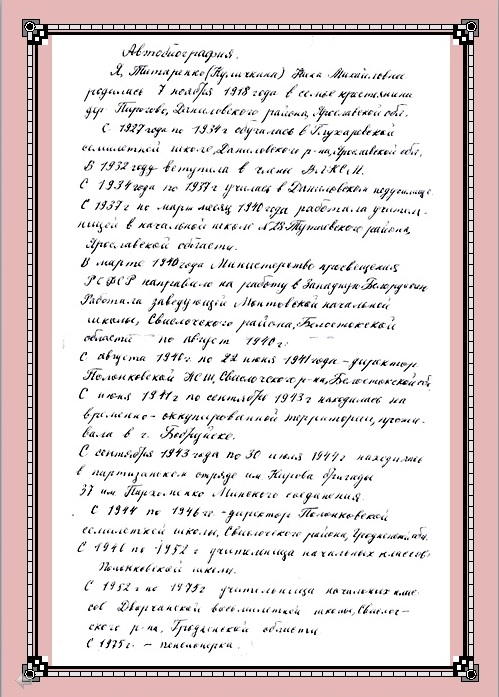 Автобиография.
Я, Титаренко (Куличкина) Ника Михайловна
родилась 7 ноября 1918 года в семье крестьянина
дер Пирогово, Даниловского района, Ярославской обл.
С 1927 года по 1934 г обучалась в Глухаревской
семилетней школе, Даниловского р-на, Ярославской обл.
В 1932 году вступила в члены ВЛКСМ.
С 1934 года по 1937 г училась в Даниловском педучилище.
С 1937 г по март месяц 1940 года работала учитель-
ницей в начальной школе №28 Тутаевского района,
Ярославской области.
В марте 1940 года Министерство просвещения
РСФСР направило на работу в Западную Белоруссию
Работала заведующей начальной
школы, Свислочского района, Белостокской
области по август 1940 г.
С августа 1940 г. по 22 июня 1941 года - директор
Полонковской НСШ, Свислочского р-на, Белостокской об
С июня 1941 г по сентябрь 1943 г находилась на
временно-оккупированной территории, прожи-
вала в г. Бобруйске.
С сентября 1943 года по 30 июля 1944 г находилась
в партизанском отряде им. Кирова бригады
37 им Пархоменко Минского соединения.
С 1944 по 1946 гг. - директор Полонковской
семилетней школы, Свислочского района, Гродненск. обл.
С 1946 по 1952 г учительница начальных классов
Полонковской школы.
С 1952 г по 1975 г учительница начальных клас-
сов Дворчанской восьмилетней школы, Свислоч-
ского р-на, Гродненской области
С 1975 г. - пенсионерка.